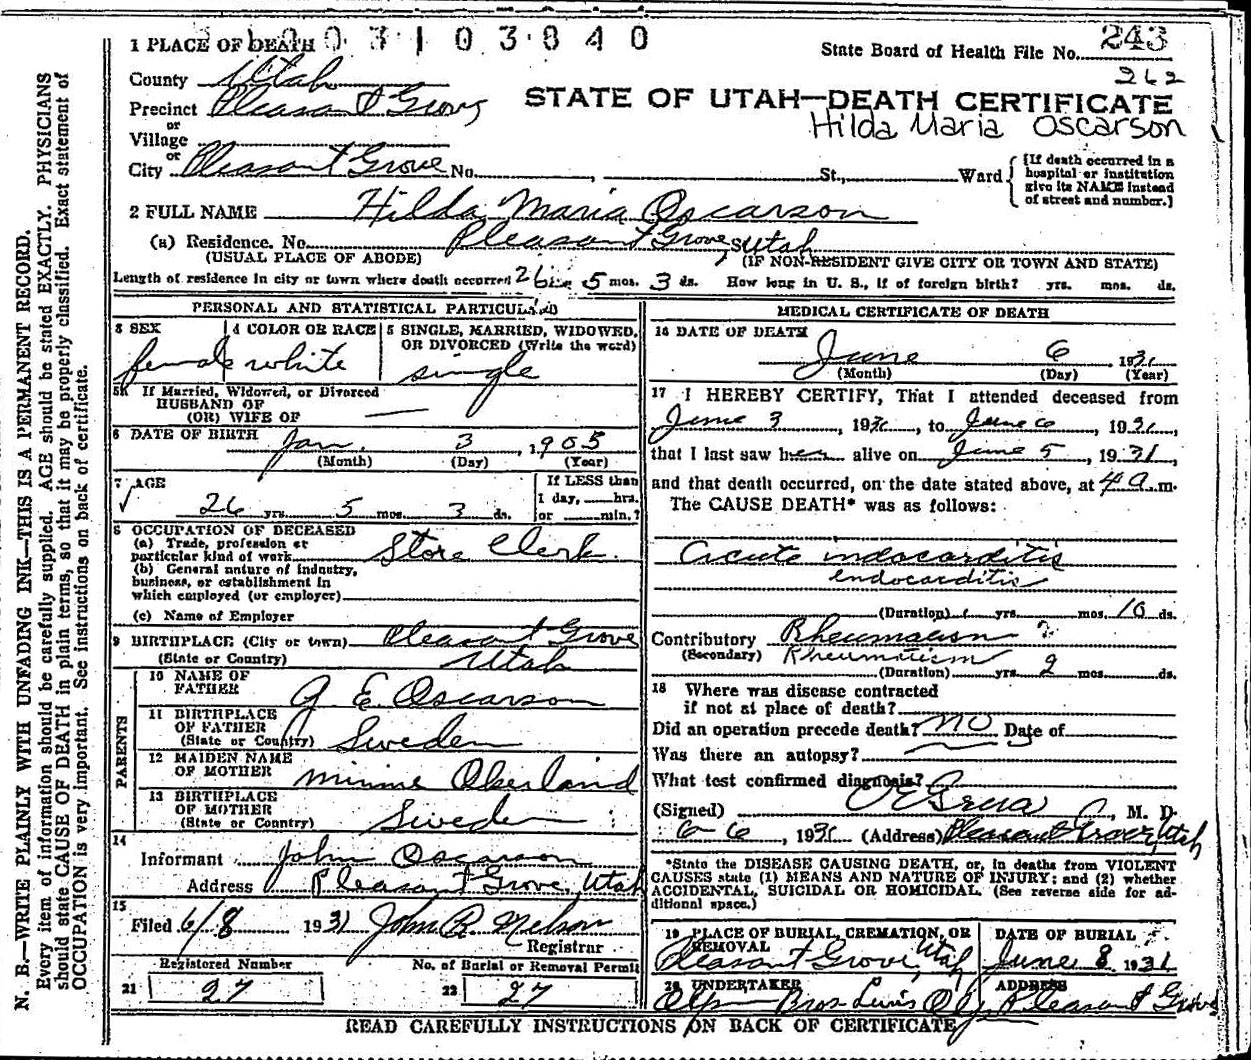 1 PLACE OF DEATH 3 1 0 0 3 1 0 3 8 4 0
State Board of Health File No. 243
262
County Utah
Precinct Pleasant Grove
STATE OF UTAH—DEATH CERTIFICATE
Hilda Maria Oscarson
or
Village
or
City Pleasant Grove No. , St., Ward
{If death occurred in a
hospital or institution
give its NAME instead
of street and number.}
2 FULL NAME Hilda Maria Oscarson
(a) Residence. No. Pleasant Grove, St. Utah
(USUAL PLACE OF ABODE) (IF NON-RESIDENT GIVE CITY OR TOWN AND STATE)
Length of residence in city or town where death occurred 26 yrs. 5 mos. 3 ds. How long in U. S., if of foreign birth? yrs. mos. ds.
PERSONAL AND STATISTICAL PARTICULARS
3 SEX
female
4 COLOR OR RACE
white
5 SINGLE, MARRIED, WIDOWED,
OR DIVORCED (Write the word)
single
5A If Married, Widowed, or Divorced
HUSBAND OF
(OR) WIFE OF —
6 DATE OF BIRTH Jan. 3, 1905
(Month) (Day) (Year)
7 AGE
✓ 26 yrs. 5 mos. 3 ds.
If LESS than
1 day, hrs.
or min.?
8 OCCUPATION OF DECEASED
(a) Trade, profession or
particular kind of work Store Clerk.
(b) General nature of industry,
business, or establishment in
which employed (or employer)
(c) Name of Employer
9 BIRTHPLACE (City or town) Pleasant Grove
(State or Country) Utah
PARENTS
10 NAME OF
FATHER J. E. Oscarson
11 BIRTHPLACE
OF FATHER
(State or Country) Sweden
12 MAIDEN NAME
OF MOTHER Minnie Okerland
13 BIRTHPLACE
OF MOTHER
(State or Country) Sweden
14
Informant John Oscarson
Address Pleasant Grove, Utah
15
Filed 6/8 1931 John R. Nelson
Registrar
Registered Number
21 27
No. of Burial or Removal Permit
22 27
MEDICAL CERTIFICATE OF DEATH
16 DATE OF DEATH
June 6 1931
(Month) (Day) (Year)
17 I HEREBY CERTIFY, That I attended deceased from
June 3, 1931, to June 6, 1931,
that I last saw her alive on June 5, 1931,
and that death occurred, on the date stated above, at 4 a. m.
The CAUSE DEATH* was as follows:
Acute indocarditis
endocarditis
(Duration) yrs. mos. 10 ds.
Contributory Rheumatism ?
(Secondary) Rheumatism
(Duration) yrs. 2 mos. ds.
18 Where was disease contracted
if not at place of death?
Did an operation precede death? no Date of
Was there an autopsy?
What test confirmed diagnosis?
(Signed) , M. D.
6-6, 1931 (Address) Pleasant Grove, Utah
*State the DISEASE CAUSING DEATH, or, in deaths from VIOLENT
CAUSES state (1) MEANS AND NATURE OF INJURY; and (2) whether
ACCIDENTAL, SUICIDAL OR HOMICIDAL. (See reverse side for ad-
ditional space.)
19 PLACE OF BURIAL, CREMATION, OR
REMOVAL
Pleasant Grove, Utah
DATE OF BURIAL
June 8 1931
20 UNDERTAKER
Bros.
ADDRESS
Pleasant Grove
READ CAREFULLY INSTRUCTIONS ON BACK OF CERTIFICATE
N. B.—WRITE PLAINLY WITH UNFADING INK—THIS IS A PERMANENT RECORD.
Every item of information should be carefully supplied. AGE should be stated EXACTLY. PHYSICIANS
should state CAUSE OF DEATH in plain terms, so that it may be properly classified. Exact statement of
OCCUPATION is very important. See instructions on back of certificate.